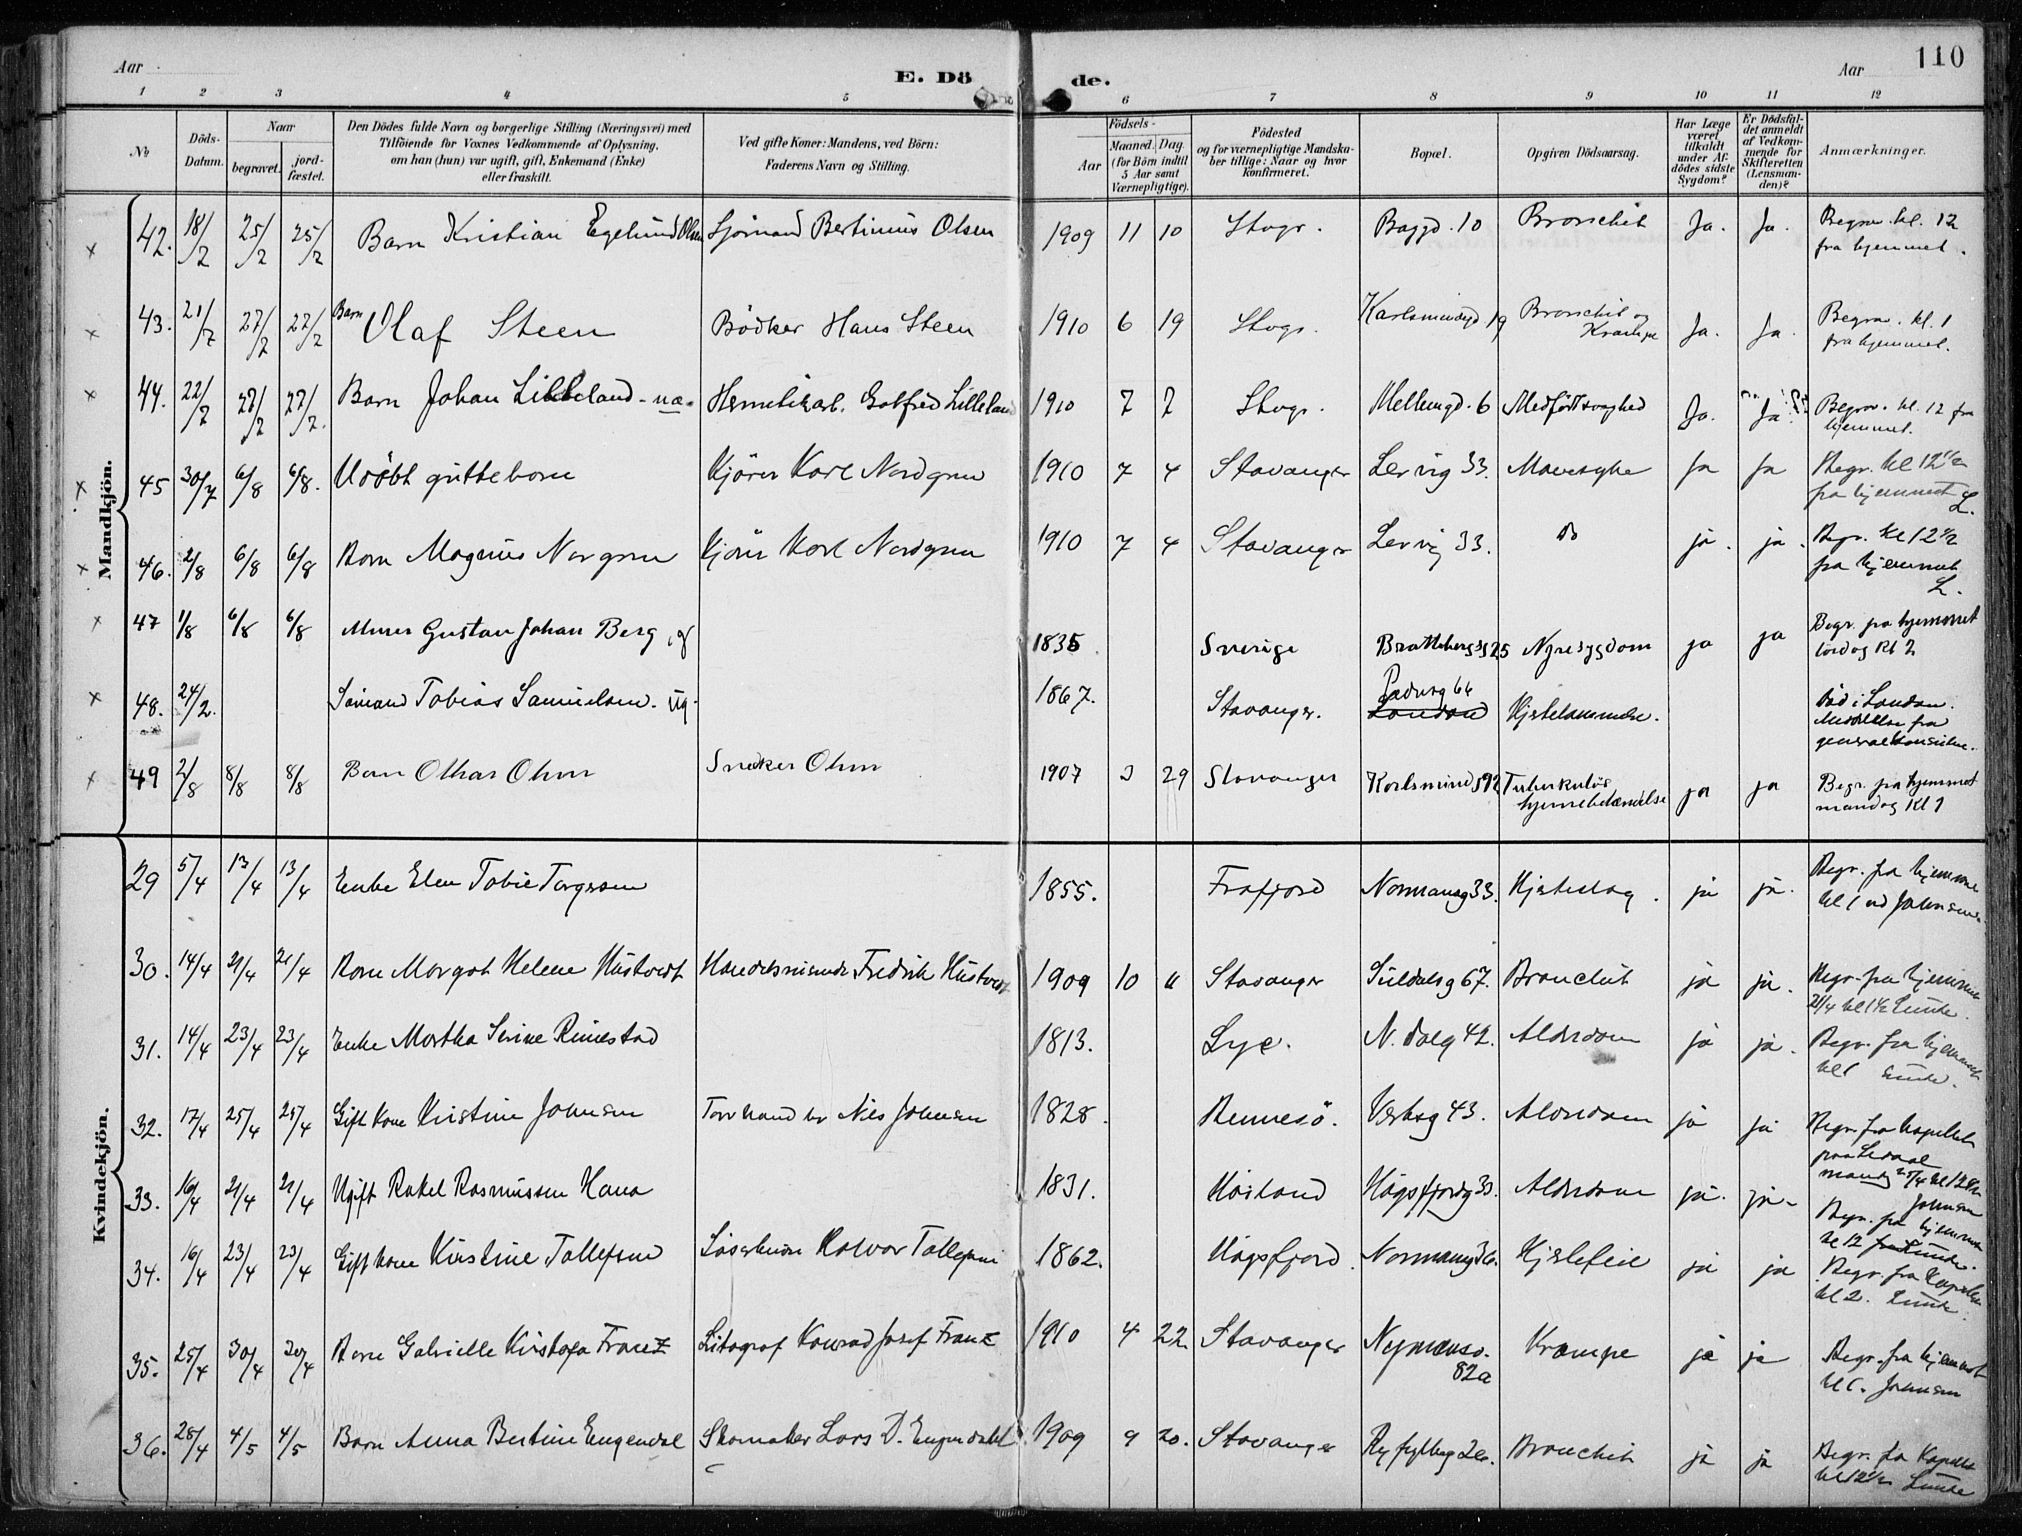 Aar
E. Dö
de.
Aar
110
1 2 3 4 5 6 7 8 9 10 11 12
No
Döds-Datum.
Naar
begravet.
jord-fæstet.
Den Dödes fulde Navn og borgerlige Stilling (Næringsvei) med
Tilföiende for Voxnes Vedkommende af Oplysning,
om han (hun) var ugift, gift, Enkemand (Enke)
eller fraskilt.
Ved gifte Koner: Mandens, ved Börn:
Faderens Navn og Stilling.
Födsels-
Aar
Maaned. Dag.
(for Börn indtil
5 Aar samt
Værnepligtige).
Födested
og for værnepligtige Mandska-
ber tillige: Naar og hvor
konfirmeret.
Bopæl.
Opgiven Dödsaarsag.
Har Læge
været
tilkaldt
under Af-
dödes sidste
Sygdom?
Er Dödsfal-
det anmeldt
af Vedkom-
mende for
Skifteretten
(Lensman-
den)?
Anmærkninger.
Mandkjön.
42. 18/2 25/2 25/2 Barn Kristian Egelund Olsen Sjömand Bertinius Olsen 1909 11 10 Stvgr. Bagd. 10 Bronchit Ja. Ja. Begrav. kl. 12
fra hjemmet.
43. 21/2 27/2 27/2 Barn Olaf Steen Bödker Hans Steen 1910 6 19 Stvgr. 19 Bronchit og
Krampe Ja. Ja. Begrav. kl. 1
fra hjemmet.
44. 22/2 27/2 27/2. Barn Johan Lilleland Hermetikarb. Gotfred Lilleland 1910 7 7 Stvgr. 6 Medfödt svaghed Ja. Ja Begrav. kl. 12 fra
hjemmet.
45 30/7 6/8 6/8. Udöbt guttebarn Kjörer Karl Nordgren 1910 7 4 Stavanger Lervig 33. Mavesyke ja ja Begr. kl 12 1/2
fra hjemmet
L.
46. 2/8 6/8 6/8 Barn Magnus Norgren Kjörer Karl Nordgren 1910 7 4 Stavanger Lervig 33. Do ja. ja. Begr. kl 12 1/2
fra hjemmet
L.
47 1/8 6/8 6/8 Murer Gustav Johan Berg, g 1835 Sverige 25 Nyresygdom ja ja Begr. fra hjemmet
lördag kl 2
48. 24/2. Sömand Tobias Samuelsen. ug. 1867. Stavanger. Pedersg 66
London Hjertelammelse. Död i London.
Meddelelse fra
generalkonsulen.
49 2/8 8/8 8/8 Barn Othar Ohm Snekker Ohm 1907 3 29 Stavanger Tuberkulös
hjernebetændelse ja ja Begr. fra hjemmet
mandag kl 1
Kvindekjön.
29 5/4 13/4 13/4 Enke Elen Tobie Torgersen 1855. Frafjord Normansg 33. Hjerteslag. ja ja. Begr. fra hjemmet
kl 1 ved Johnsen.
30. 14/4 21/4 21/4 Barn Margot Helene Hustvedt Fredrik Hustvedt 1909 10 11 Stavanger Suldalsg 67. Bronchit ja ja. Begr. fra hjemmet
21/4 kl 1 1/2 Lunde.
31. 14/4 23/4 23/4 Enke Martha Serine Rimestad 1813. Lye. N. Dalg 42. Alderdom ja ja. Begr. fra hjemmet
kl 1 Lunde.
32. 17/4 25/4 25/4 Gift kone Kirstine Johnsen Torvhandler Nils Johnsen 1828. Rennesö. Verksg 43. Alderdom ja ja Begr. fra kapellet
paa Ledaal
mandg 25/4 kl 12 1/2
Johnsen
33. 16/4 21/4 21/4 Ugift Rakel Rasmussen Hana 1831. Höiland Högsfjordg 33. Alderdom ja. ja. Begr. fra hjemmet
kl 12 Lunde.
34. 16/4 23/4 23/4 Gift kone Kirstine Tollefsen Halvor Tollefsen 1862. Högsfjord Normansg 36. Hjertefeil ja ja Begr. fra Kapellet
kl 2. Lunde.
35. 25/4 30/4 30/4 Barn Gabrielle Kristofa Franz Litograf Konrad Josef Franz 1910 4 22 Stavanger Nymansv.
82a Krampe ja ja Begr. fra hjemmet
kl 1. Johnsen
36. 28/4 4/5 4/5 Barn Anna Bertine Engendal Skomaker Lars D. Engendahl 1909 9 20. Stavanger Ryfylkeg 26. Bronchit ja ja Begr. fra Kapellet
kl 12 1/2 Lunde